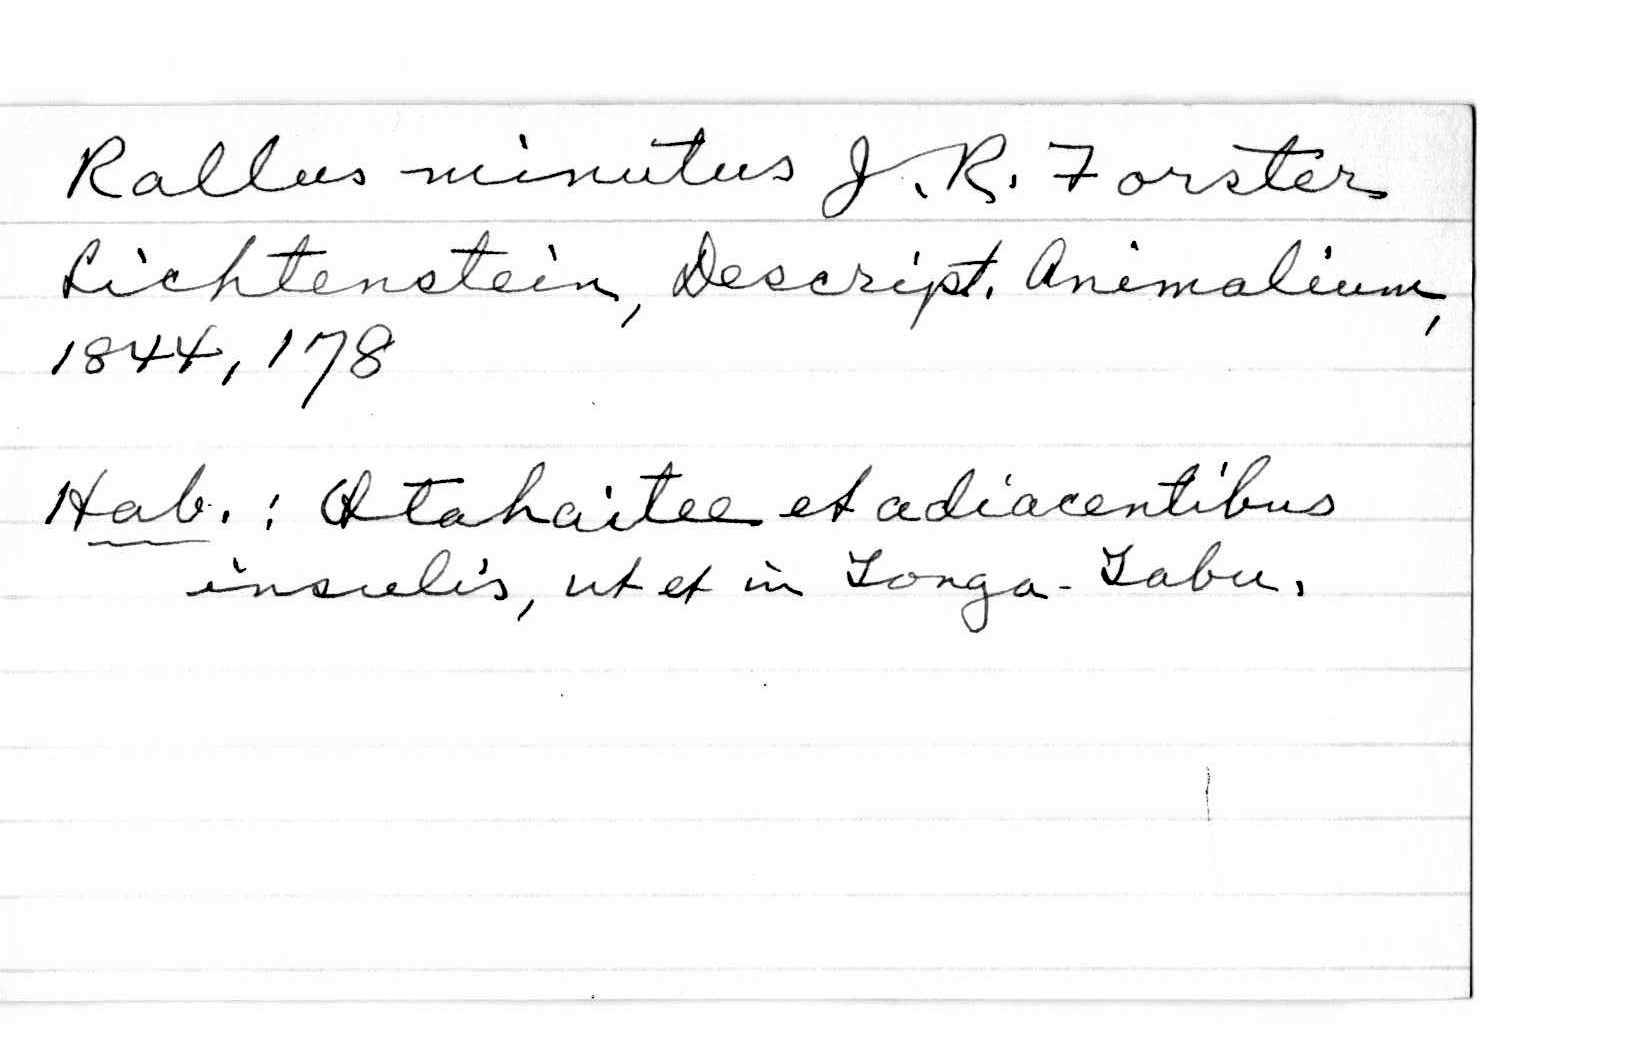 Rallus minutus J. R. Forster
Lichtenstein, Descript. Animalium,
1844, 178
Hab. : Otahaitee et adiacentibus
insulis, ut et in Tonga-Tabu.